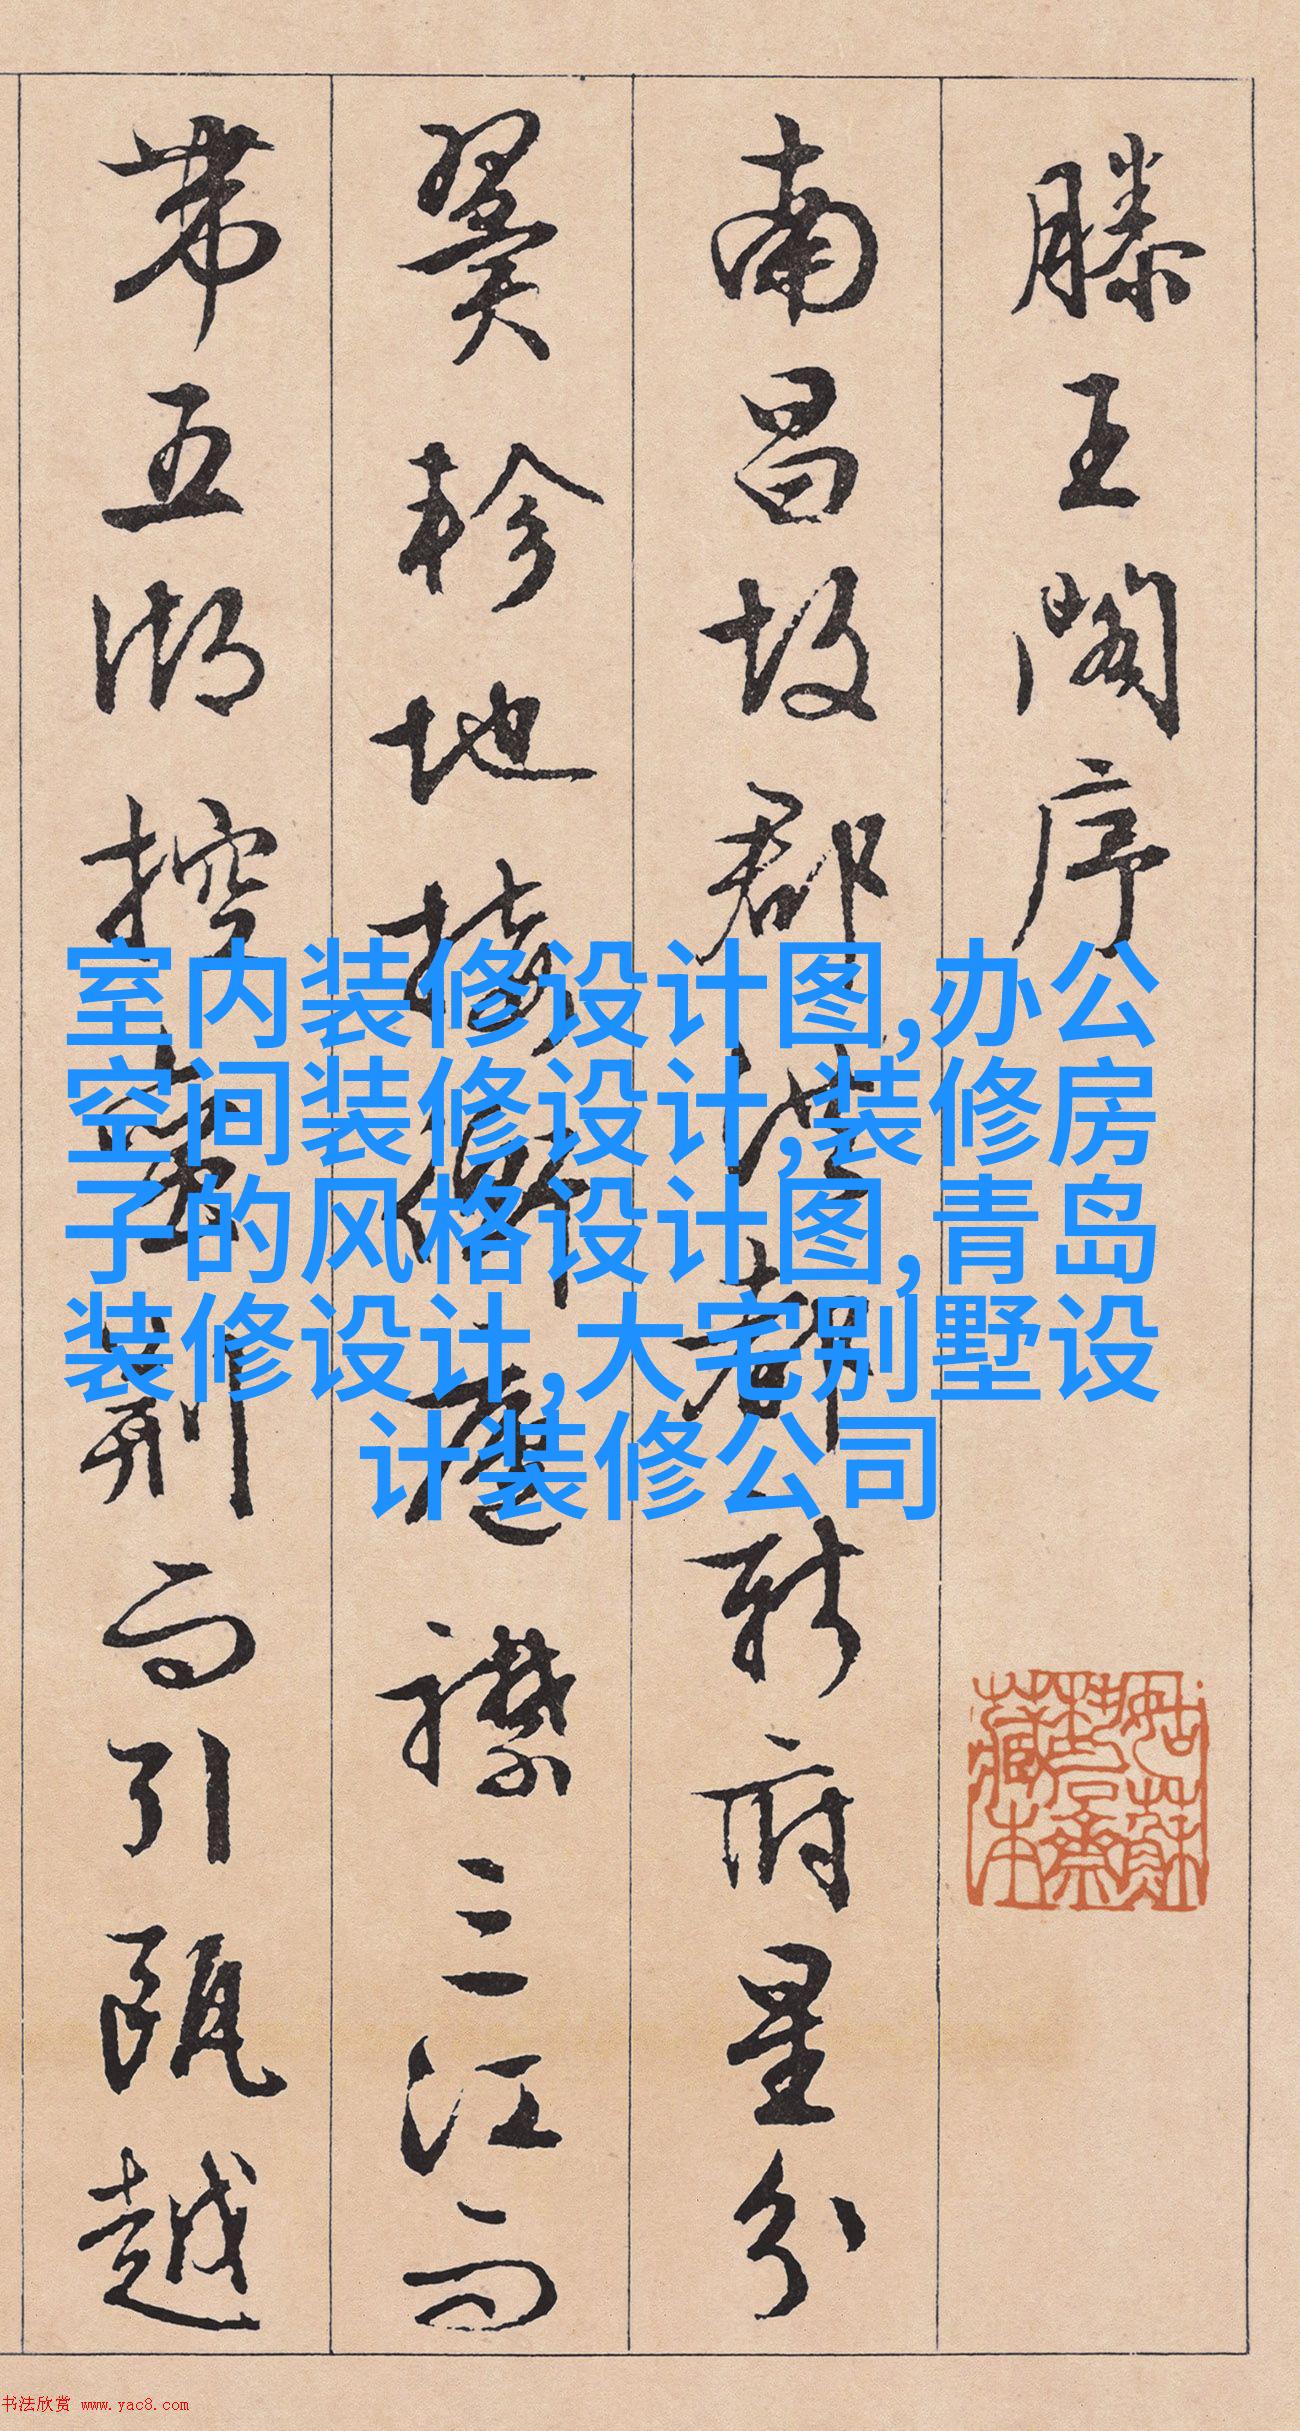 滕王閣序
南昌故郡洪都新府星分
翼軫地接衡廬襟三江而
帶五湖控蠻荊而引甌越
室内装修设计图,办公
空间装修设计,装修房
子的风格设计图,青岛
装修设计,大宅别墅设
计装修公司
书法欣赏 www.yac8.com